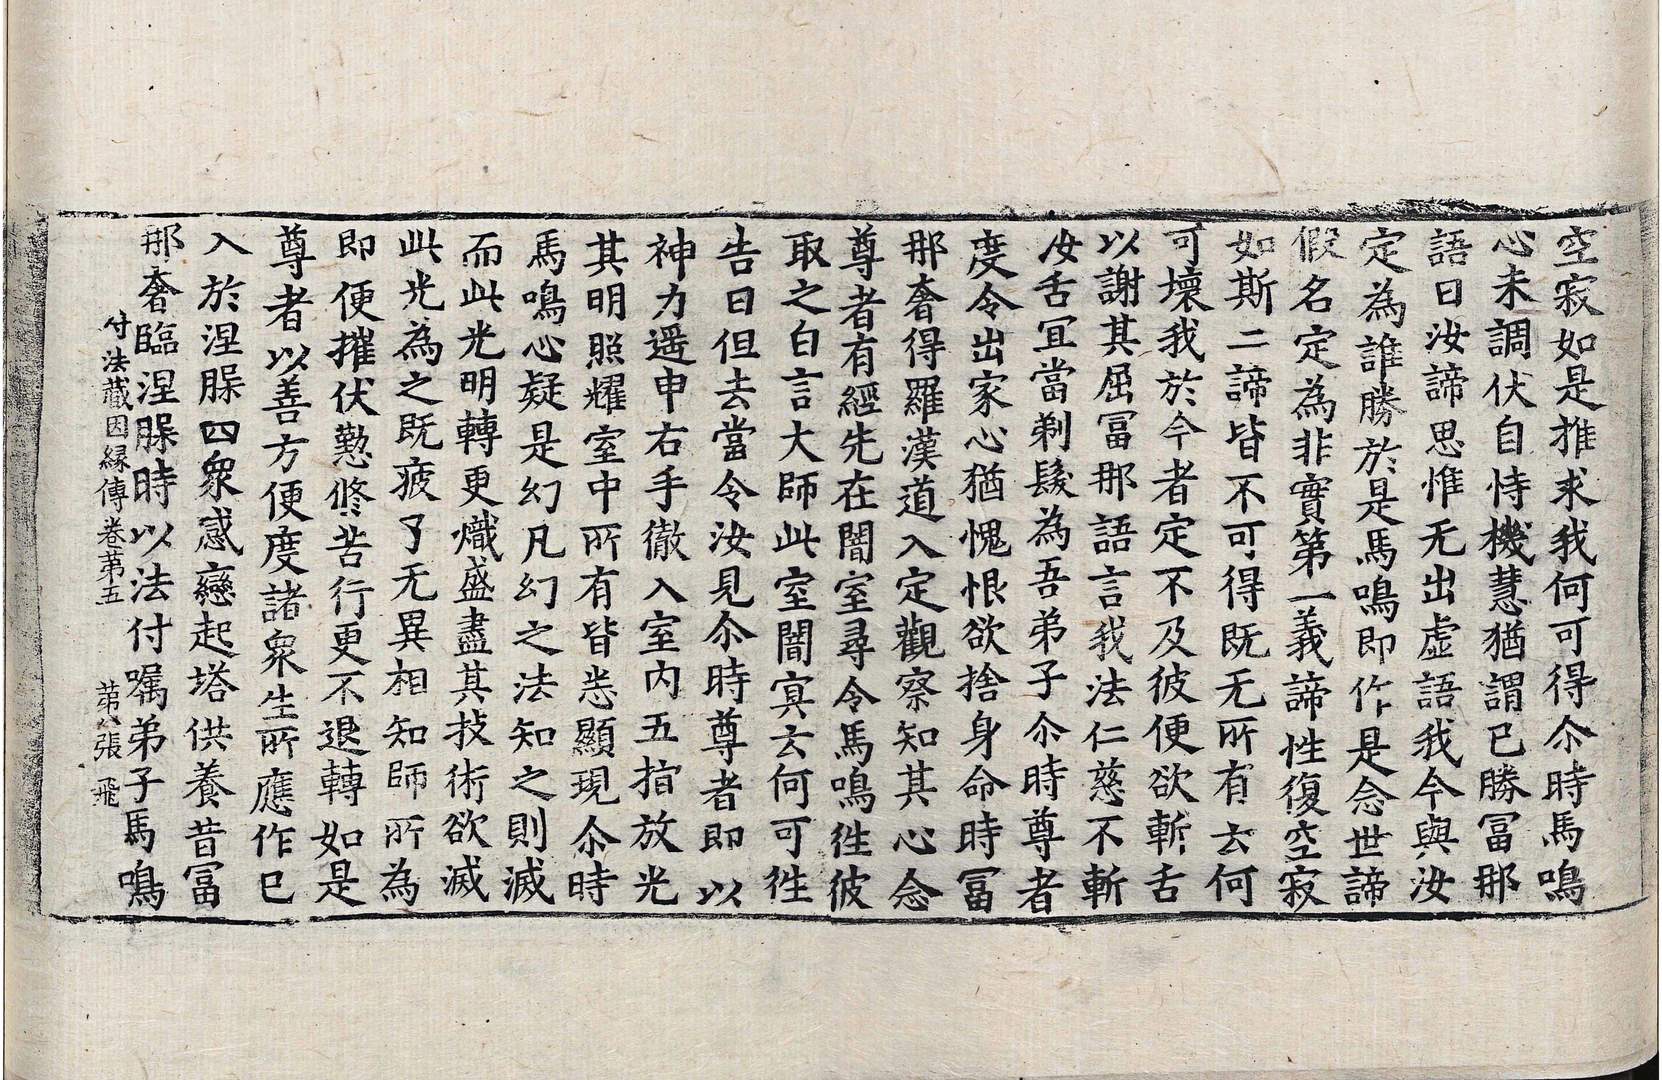 空寂如是推求我何可得尒時馬鳴
心未調伏自恃機慧猶謂已勝冨那
語曰汝諦思惟无出虛語我今與汝
定為誰勝於是馬鳴即作是念世諦
假名定為非實第一義諦性復空寂
如斯二諦皆不可得既无所有云何
可壞我於今者定不及彼便欲斬舌
以謝其屈冨那語言我法仁慈不斬
汝舌冝當剃髮為吾弟子尒時尊者
度令出家心猶愧恨欲捨身命時冨
那奢得羅漢道入定觀察知其心念
尊者有經先在闇室尋令馬鳴徃彼
取之白言大師此室闇冥云何可徃
告曰但去當令汝見尒時尊者即以
神力遥申右手徹入室內五指放光
其明照耀室中所有皆悉顯現尒時
馬鳴心疑是幻凡幻之法知之則滅
而此光明轉更熾盛盡其技術欲滅
此光為之既疲了无異相知師所為
即便摧伏懃修苦行更不退轉如是
尊者以善方便度諸衆生所應作已
入於涅𦙁四衆感戀起塔供養昔冨
那奢臨涅𦙁時以法付囑弟子馬鳴
付法藏因縁傳卷苐五 苐八張 飛